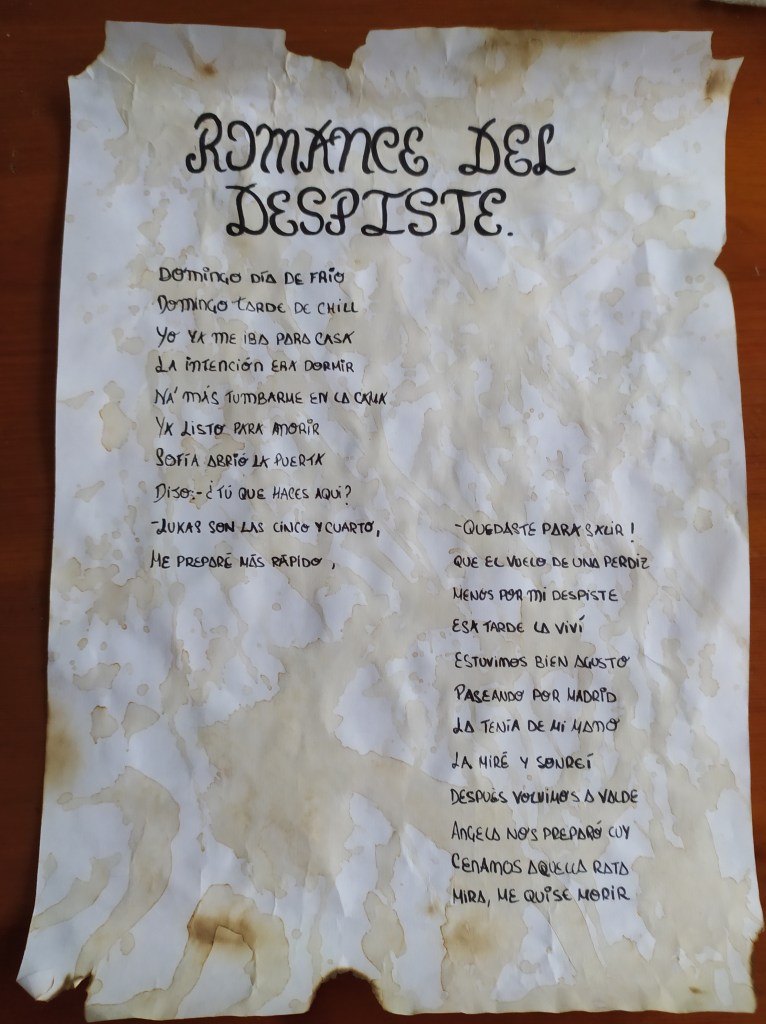 ROMANCE DEL
DESPISTE.
DOMINGO DÍA DE FRIO
DOMINGO TARDE DE CHILL
YO YA ME IBA PARA CASA
LA INTENCIÓN ERA DORMIR
NA' MÁS TUMBARME EN LA CAMA
YA LISTO PARA AMORIR
SOFÍA ABRIÓ LA PUERTA
DIJO:-¿TÚ QUE HACES AQUI?
-LUKAS SON LAS CINCO Y CUARTO,
-QUEDASTE PARA SALIR!
ME PREPARÉ MÁS RÁPIDO,
QUE EL VUELO DE UNA PERDIZ
MENOS POR MI DESPISTE
ESA TARDE LA VIVÍ
ESTUVIMOS BIEN AGUSTO
PASEANDO POR MADRID
LA TENIA DE MI MANO
LA MIRÉ Y SONREÍ
DESPUÉS VOLVIMOS A VALDE
ANGELA NOS PREPARÓ CUY
CENAMOS AQUELLA RATA
MIRA, ME QUISE MORIR